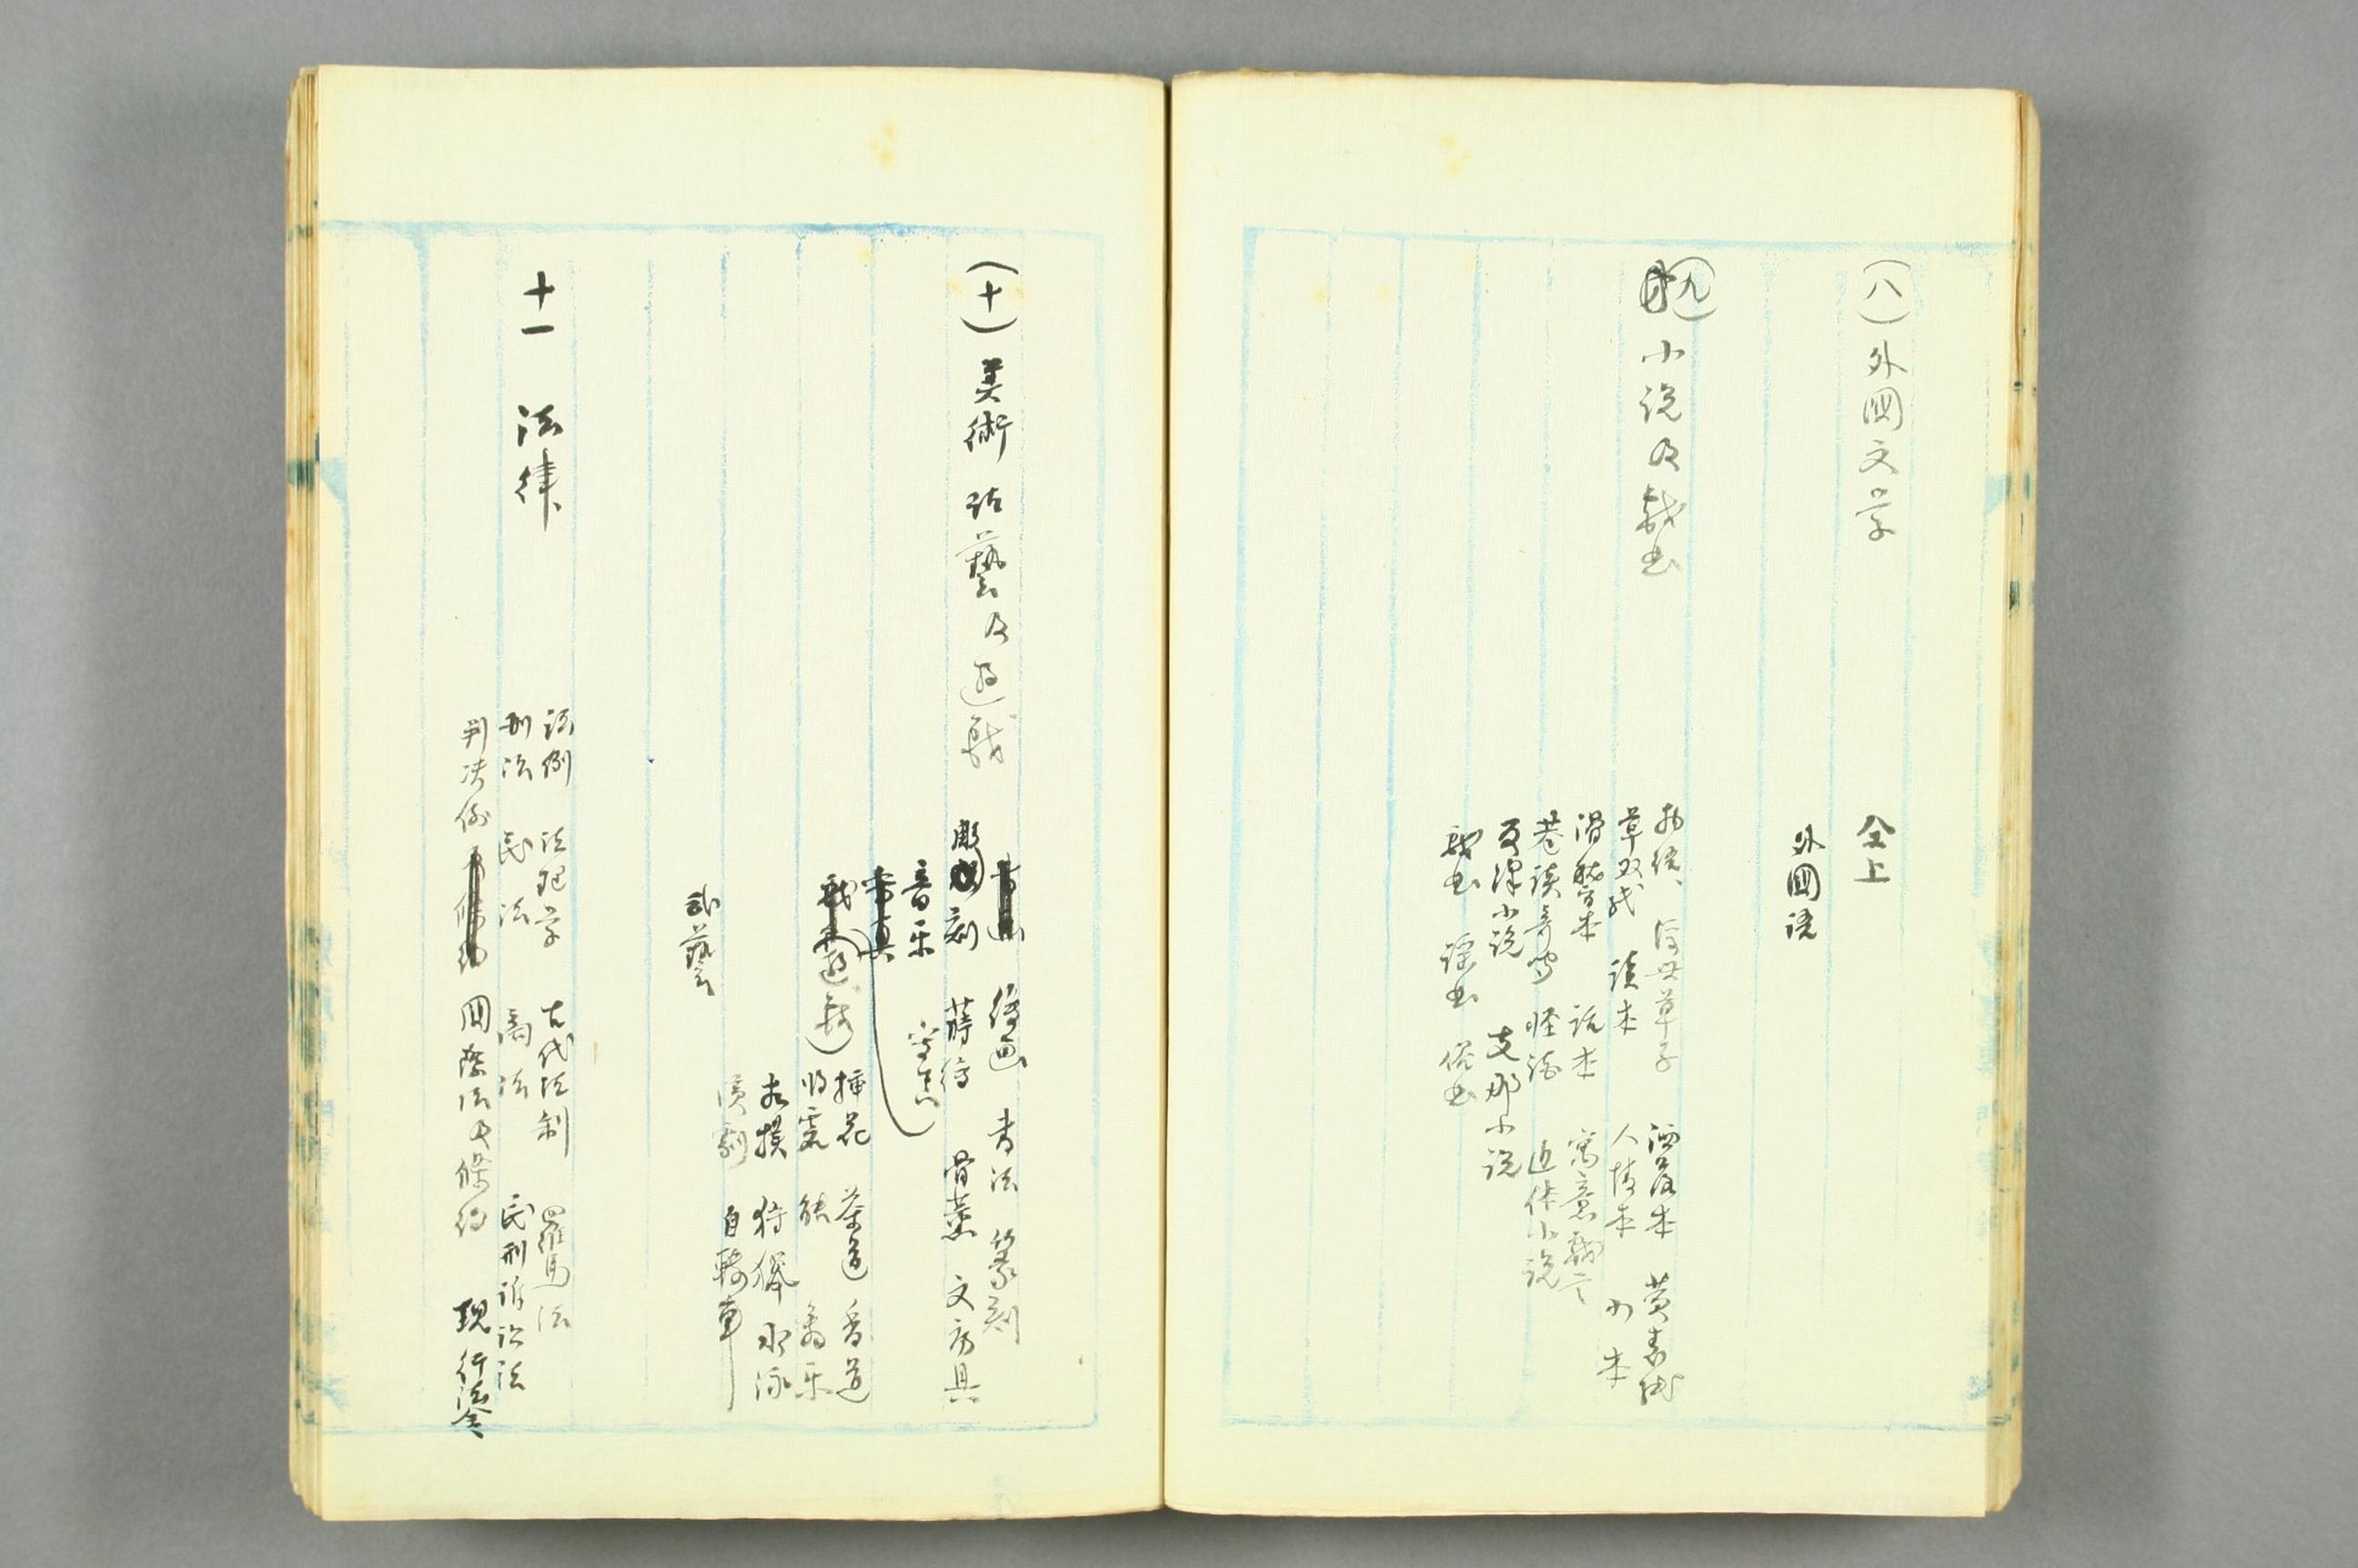 (八)外国文学
仝上
外国语
(九)小説及戯書
物語、 草子 洒落本 黄表紙
草双紙 読本 人情本 小本
滑稽本 話本 寓意
巷談奇聞 怪談 近体小説
反訳小説 支那小説
戯書 謡書 俗書
(十)美術諸藝及遊戯
絵画 書法 篆刻
彫刻 蒔絵 骨董 文房具
音楽 写真
(遊戯)
挿花 茶道 香道
将棊 能 音楽
相撲 狩猟 水泳
演劇 自轉車
武藝
十一 法律
法例 法理学 古代法制 羅馬法
刑法 民法 商法 民刑訴訟法
判決例 国際法及條約 現行法令